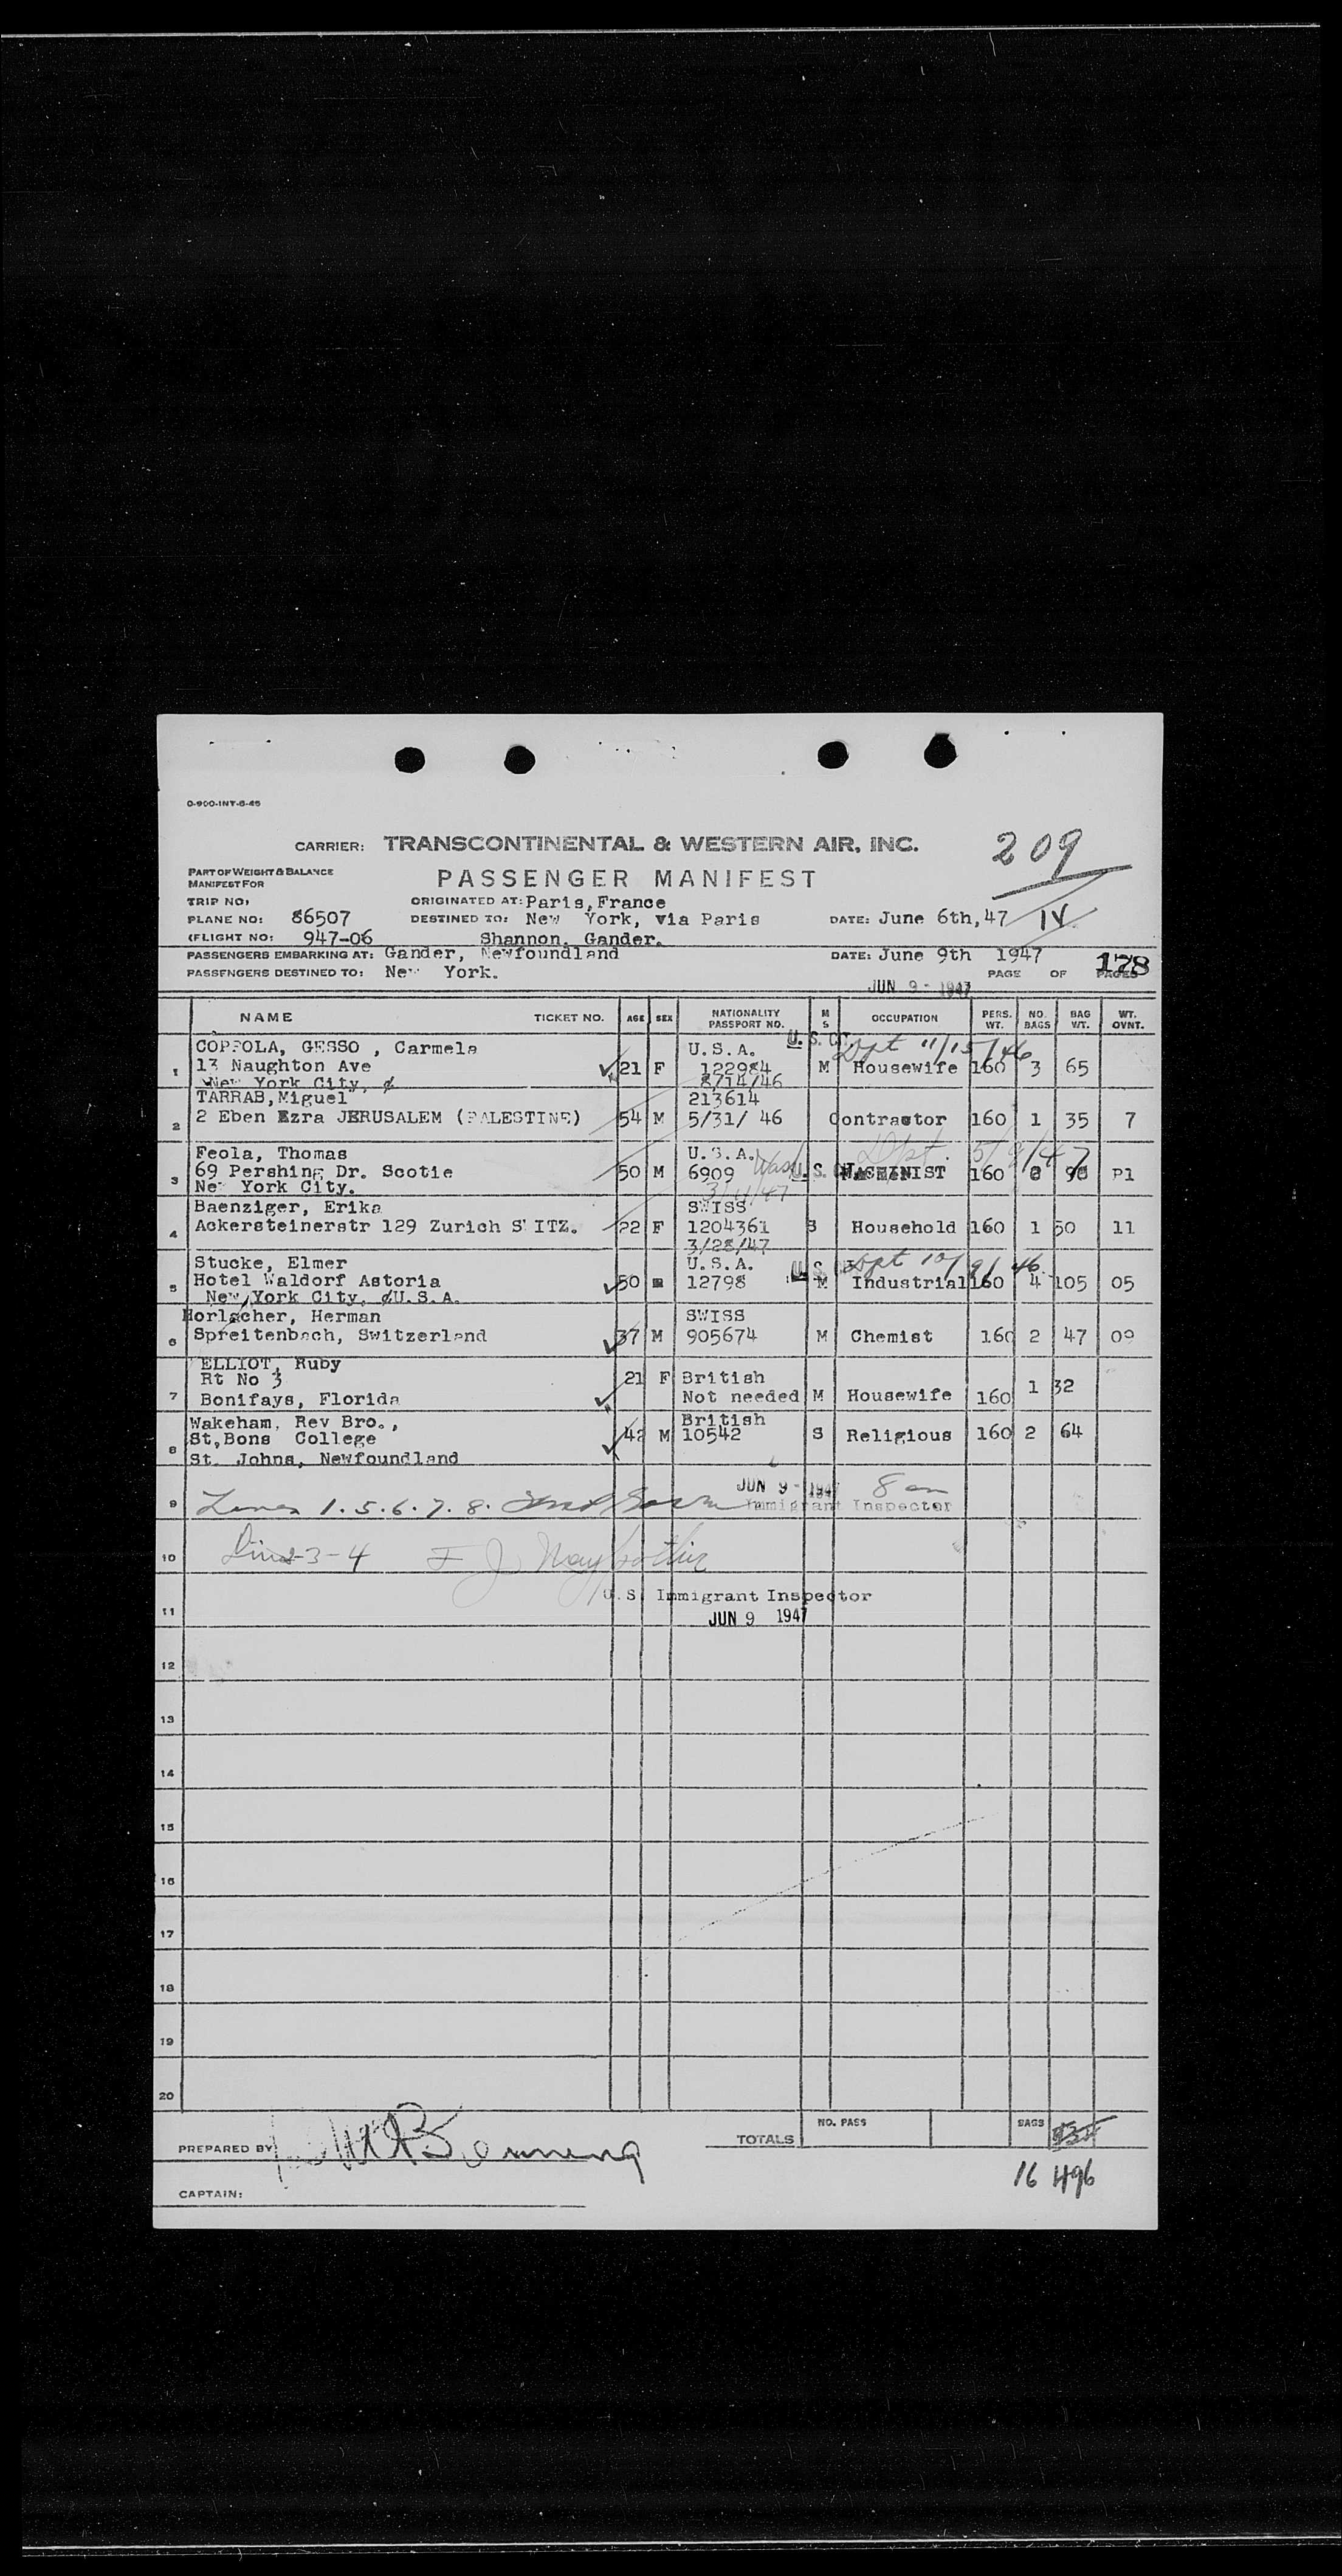 O-900-INT-6-45
CARRIER: TRANSCONTINENTAL & WESTERN AIR, INC.
209
PART OF WEIGHT & BALANCE
MANIFEST FOR
PASSENGER MANIFEST
TRIP NO:
ORIGINATED AT: Paris, France
PLANE NO: 86507
DESTINED TO: New York, via Paris
DATE: June 6th, 47
IV
FLIGHT NO: 947-06
Shannon, Gander.
PASSENGERS EMBARKING AT: Gander, Newfoundland
DATE: June 9th 1947
PASSENGERS DESTINED TO: New York.
PAGE OF PAGES
178
JUN 9 - 1947
NAME TICKET NO. AGE SEX NATIONALITY PASSPORT NO. M S OCCUPATION PERS. WT. NO. BAGS BAG WT. WT. OVNT.
COPPOLA, GESSO , Carmela U.S.A. U.S. CIT. Dpt 11/15/46
1 13 Naughton Ave 21 F 122984 M Housewife 160 3 65
New York City, 8/14/46
TARRAB, Miguel 213614
2 2 Eben Ezra JERUSALEM (PALESTINE) 54 M 5/31/ 46 Contractor 160 1 35 7
Feola, Thomas U.S.A. Wash Dpt.
3 69 Pershing Dr. Scotie 50 M 6909 U.S. 160
New York City. 3/4/47
Baenziger, Erika SWISS
4 Ackersteinerstr 129 Zurich S ITZ. 22 F 1204361 S Household 160 1 50 11
3/28/47
Stucke, Elmer U.S.A. U.S. Dpt 10/9/46
5 Hotel Waldorf Astoria 50 12798 M Industrial 160 4 105 05
New York City, U.S.A.
Horlacher, Herman SWISS
6 Spreitenbach, Switzerland 37 M 905674 M Chemist 160 2 47 09
ELLIOT, Ruby
Rt No 3 21 F British
7 Bonifays, Florida Not needed M Housewife 160 1 32
Wakeham, Rev Bro., British
8 St,Bons College 42 M 10542 S Religious 160 2 64
St. Johns, Newfoundland
JUN 9 - 1947 8 am
9 Lines 1. 5. 6. 7. 8. Immigrant Inspector
10 Lines 2-3-4 F J
U.S. Immigrant Inspector
11 JUN 9 1947
12
13
14
15
16
17
18
19
20
NO. PASS BAGS
TOTALS
PREPARED BY
16 496
CAPTAIN: